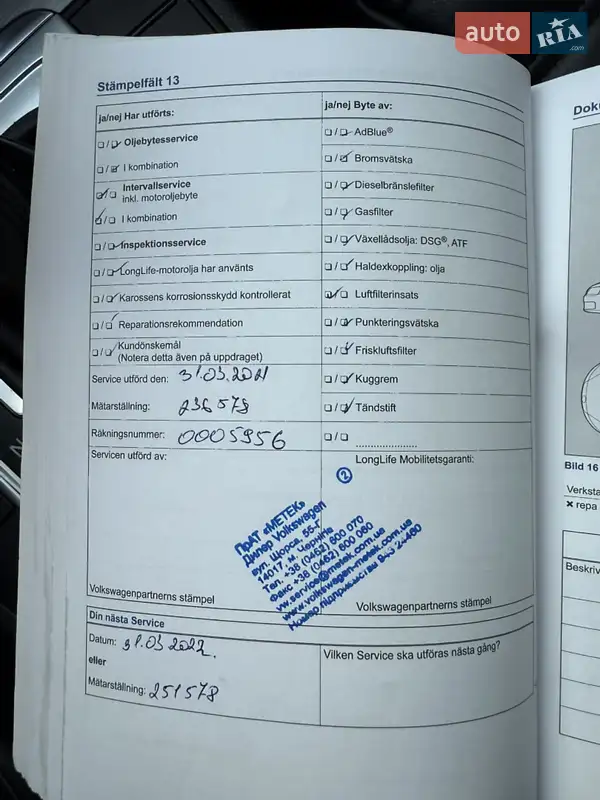 auto RIA.com
Stämpelfält 13
ja/nej Har utförts:
Oljebytesservice
I kombination
Intervallservice
inkl. motoroljebyte
I kombination
Inspektionsservice
LongLife-motorolja har använts
Karossens korrosionsskydd kontrollerat
Reparationsrekommendation
Kundönskemål
(Notera detta även på uppdraget)
Service utförd den: 31.03.2021
Mätarställning: 236578
Räkningsnummer: 0005956
Servicen utförd av:
Volkswagenpartnerns stämpel
ja/nej Byte av:
AdBlue®
Bromsvätska
Dieselbränslefilter
Gasfilter
Växellådsolja: DSG®, ATF
Haldexkoppling: olja
Luftfilterinsats
Punkteringsvätska
Friskluftsfilter
Kuggrem
Tändstift
LongLife Mobilitetsgaranti:
2
ПрАТ «МЕТЕК»
Дилер Volkswagen
вул. Щорса, 55-Г
14017 м. Чернігів
Тел. +38 (0462) 600 070
Факс +38 (0462) 600 060
vw.service@metek.com.ua
www.volkswagen-metek.com.ua
Номер підприємства
Volkswagenpartnerns stämpel
Din nästa Service
Datum: 31.03 2022.
eller
Mätarställning: 251578
Vilken Service ska utföras nästa gång?
Bild 16
Verksta
× repa
Beskriv